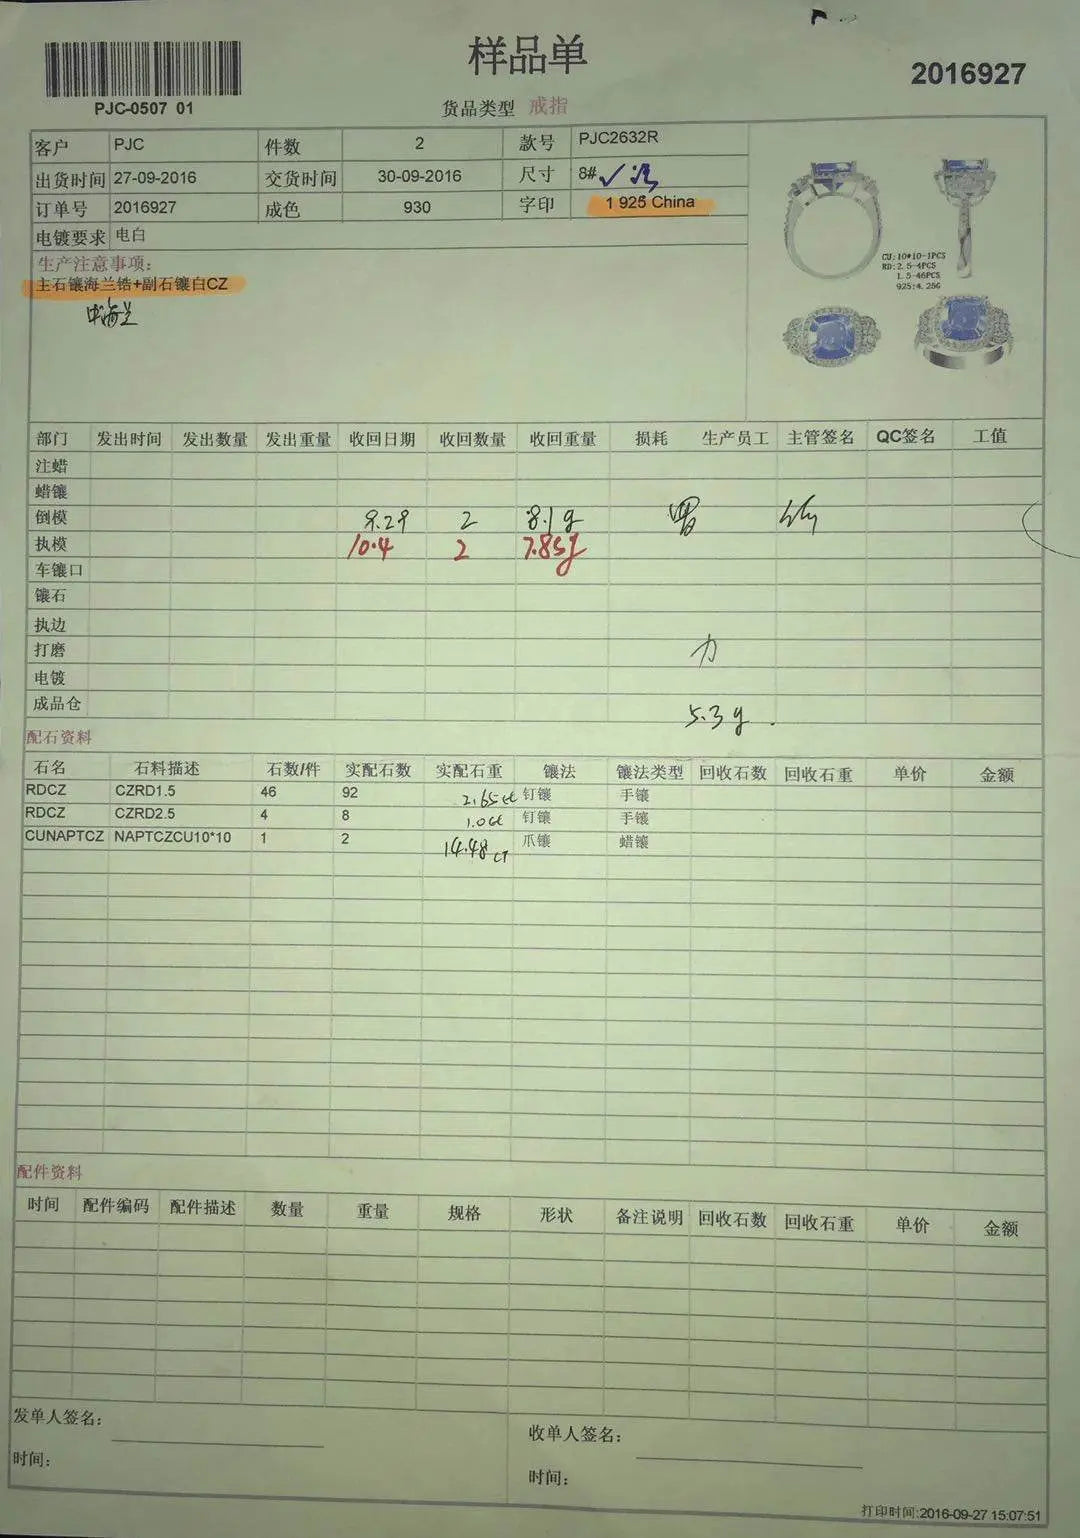 样品单
2016927
PJC-0507 01
货品类型 戒指
客户 PJC 件数 2 款号 PJC2632R
出货时间 27-09-2016 交货时间 30-09-2016 尺寸 8# ✓
订单号 2016927 成色 930 字印 1 925 China
电镀要求 电白
生产注意事项:
主石镶海兰锆+副石镶白CZ
中海兰
CU:10*10-1PCS
RD:2.5-4PCS
1.5-46PCS
925:4.26G
部门 发出时间 发出数量 发出重量 收回日期 收回数量 收回重量 损耗 生产员工 主管签名 QC签名 工值
注蜡
蜡镶
倒模 9.29 2 8.1g
执模 10.4 2 7.85g
车镶口
镶石
执边
打磨 力
电镀
成品仓 5.3g.
配石资料
石名 石料描述 石数/件 实配石数 实配石重 镶法 镶法类型 回收石数 回收石重 单价 金额
RDCZ CZRD1.5 46 92 2.65ct 钉镶 手镶
RDCZ CZRD2.5 4 8 1.0ct 钉镶 手镶
CUNAPTCZ NAPTCZCU10*10 1 2 14.48CT 爪镶 蜡镶
配件资料
时间 配件编码 配件描述 数量 重量 规格 形状 备注说明 回收石数 回收石重 单价 金额
发单人签名:
收单人签名:
时间:
时间:
打印时间:2016-09-27 15:07:51